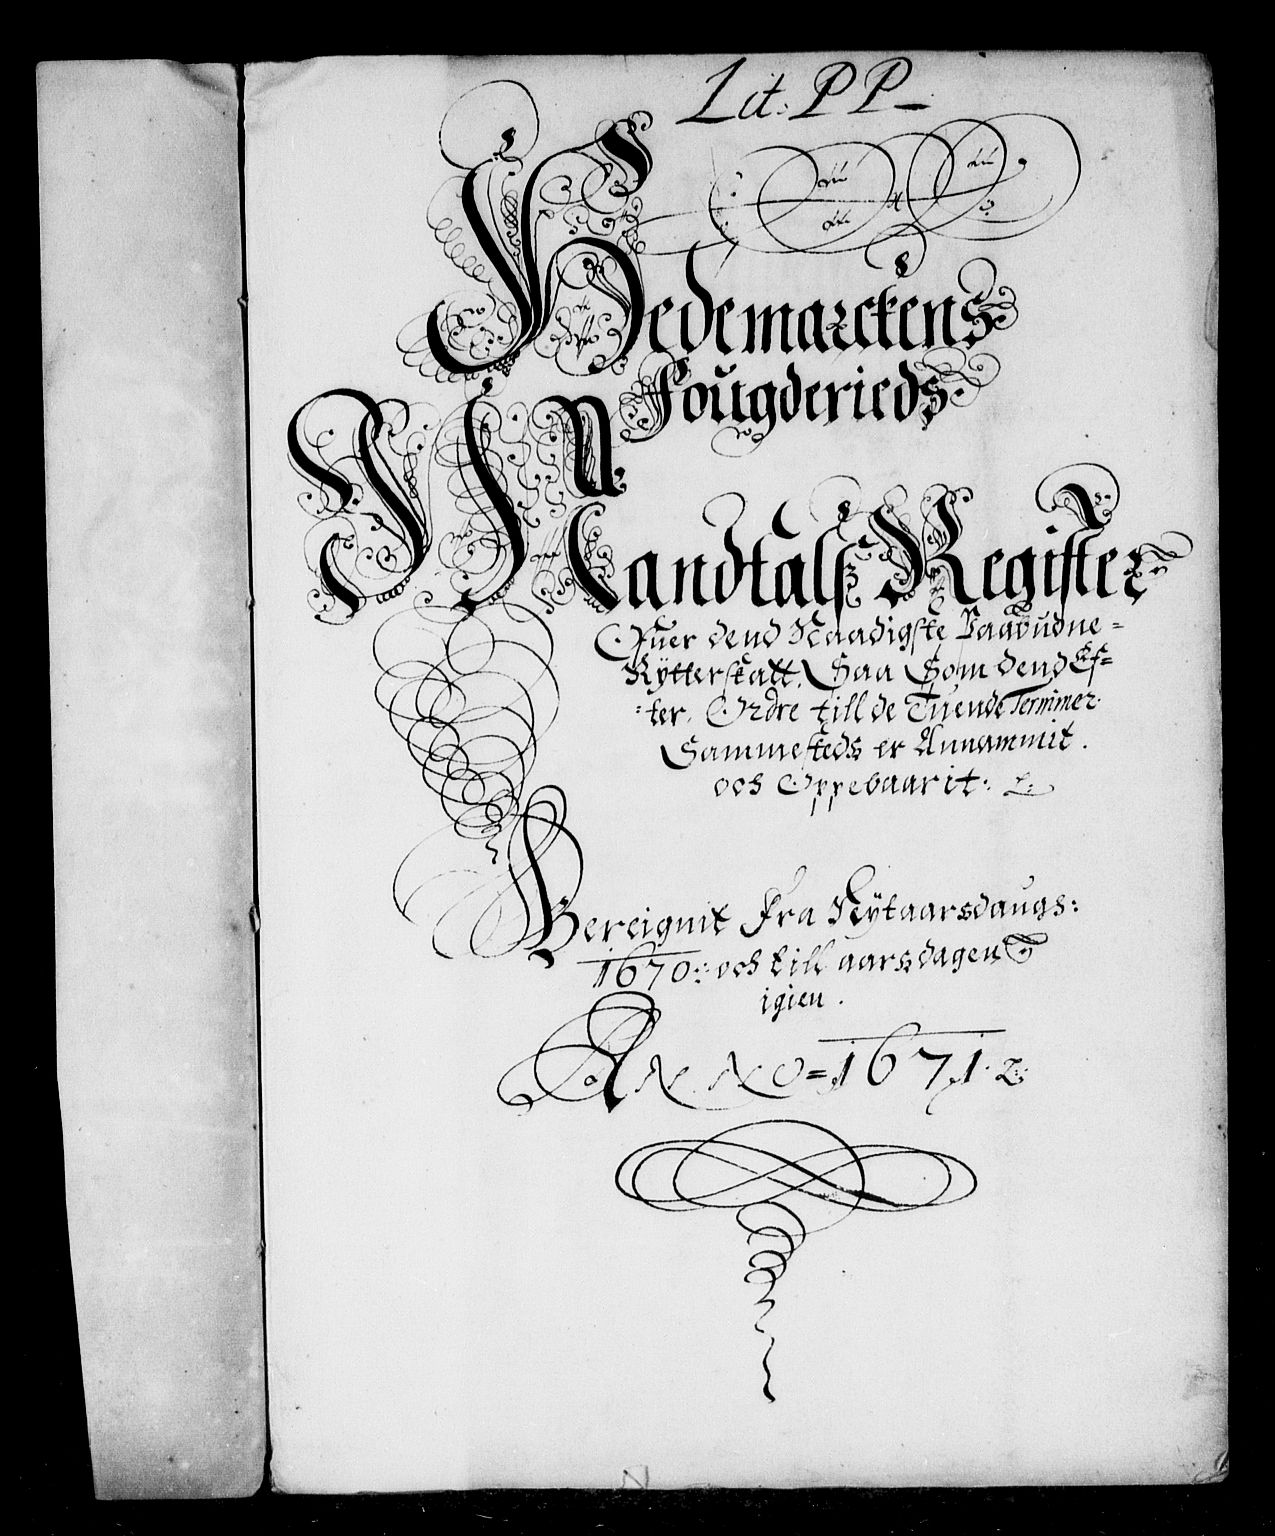 Lit: PP
Hedemarckens
Fougderieds
Mandtals Register
Ofuer dend Naadigste Paabudne
Rytterskatt, Saa Som dend Ef-
ter Ordre till de Tuende Terminer
Sammesteds er Annammit
och Oppebaarit
Bereignit Fra Nytaarsdaugs:
1670: och till aarsdagen
igien.
ANNO=1671.